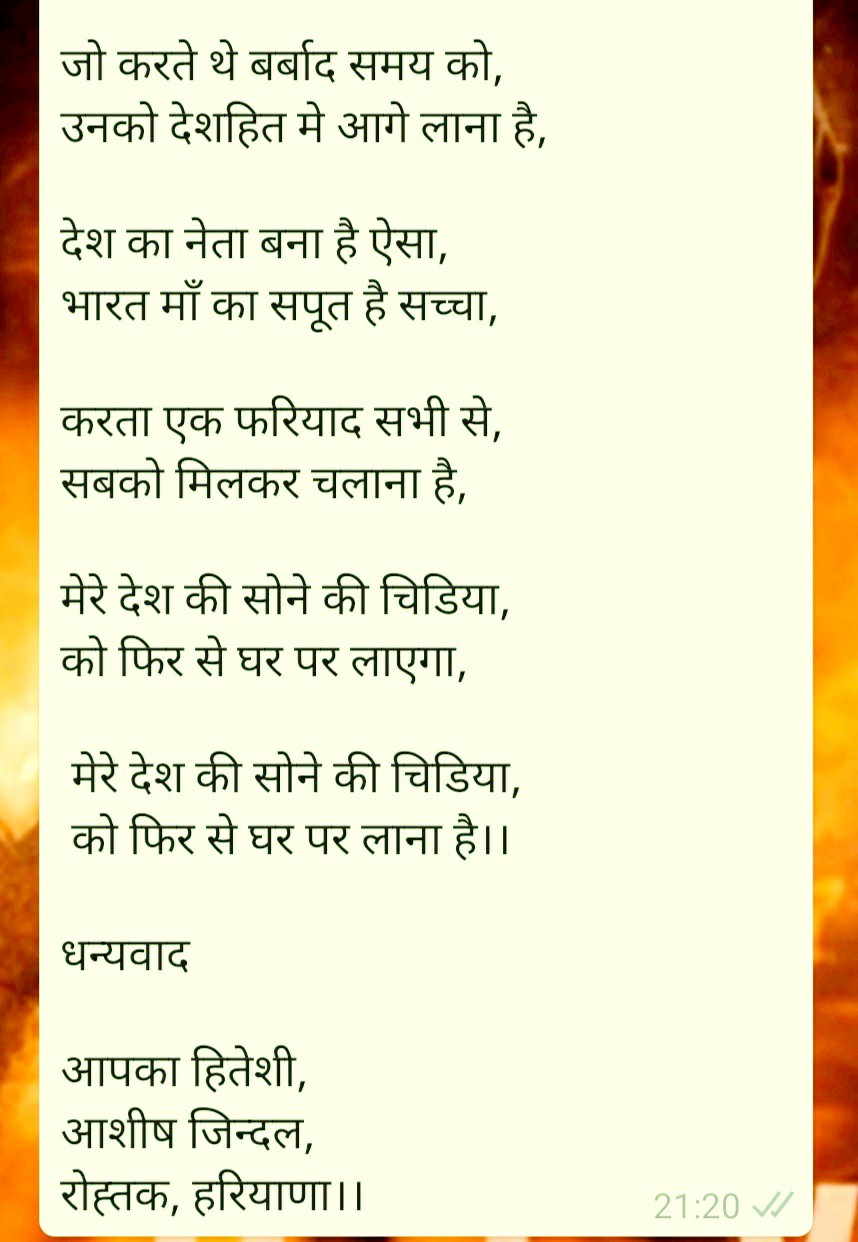 जो करते थे बर्बाद समय को,
उनको देशहित मे आगे लाना है,
देश का नेता बना है ऐसा,
भारत माँ का सपूत है सच्चा,
करता एक फरियाद सभी से,
सबको मिलकर चलाना है,
मेरे देश की सोने की चिडिया,
को फिर से घर पर लाएगा,
मेरे देश की सोने की चिडिया,
को फिर से घर पर लाना है।।
धन्यवाद
आपका हितेशी,
आशीष जिन्दल,
रोह्तक, हरियाणा।।
21:20